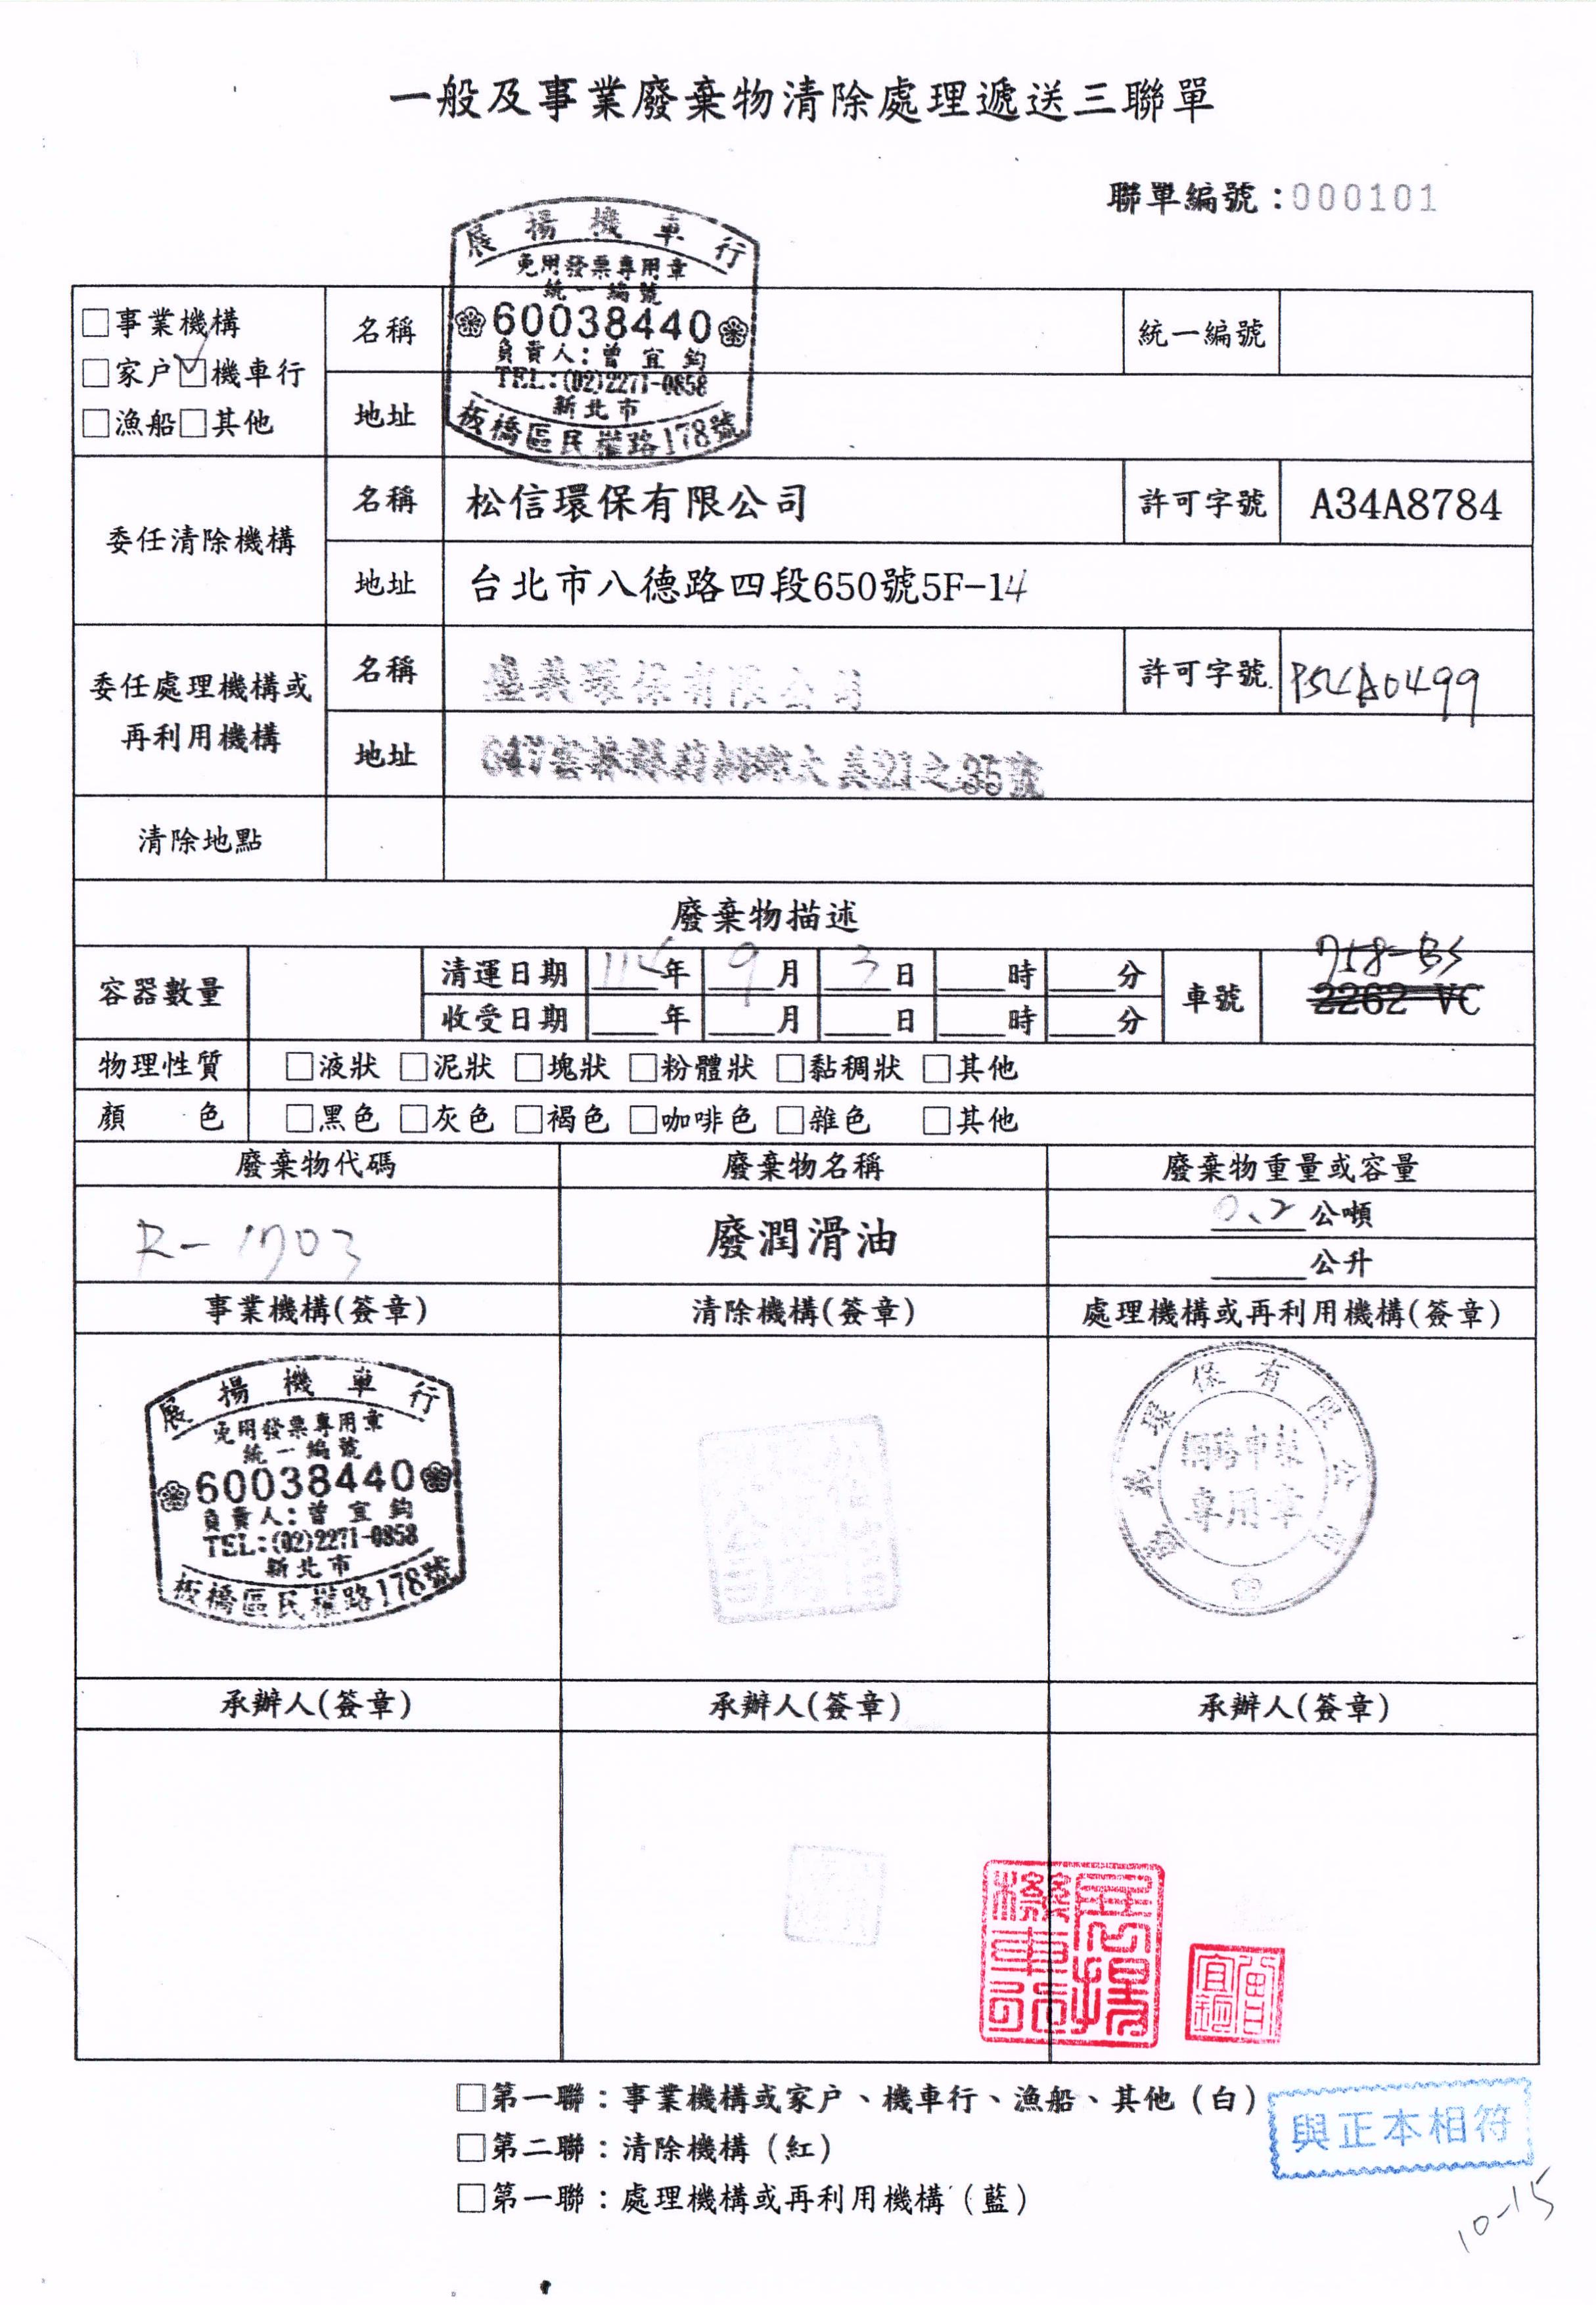 一般及事業廢棄物清除處理遞送三聯單
聯單編號：000101
展揚機車行
免用發票專用章
統一編號
60038440
負責人：曾宜鈞
TEL：(02)2271-0858
新北市
板橋區民權路178號
□事業機構
□家戶□機車行
□漁船□其他
名稱
統一編號
地址
委任清除機構
名稱
松信環保有限公司
許可字號
A34A8784
地址
台北市八德路四段650號5F-14
委任處理機構或
再利用機構
名稱
環保有限公司
許可字號
A0499
地址
647雲林縣莿桐鄉大美21之35號
清除地點
廢棄物描述
容器數量
清運日期 114年 9月 3日 時 分
收受日期 年 月 日 時 分
車號
758-BS
2262 VC
物理性質 □液狀 □泥狀 □塊狀 □粉體狀 □黏稠狀 □其他
顏 色 □黑色 □灰色 □褐色 □咖啡色 □雜色 □其他
廢棄物代碼
廢棄物名稱
廢棄物重量或容量
R-1703
廢潤滑油
0.2公噸
公升
事業機構(簽章)
清除機構(簽章)
處理機構或再利用機構(簽章)
展揚機車行
免用發票專用章
統一編號
60038440
負責人：曾宜鈞
TEL：(02)2271-0858
新北市
板橋區民權路178號
環保有限公司
網路申報
專用章
承辦人(簽章)
承辦人(簽章)
承辦人(簽章)
展揚機車行
□第一聯：事業機構或家戶、機車行、漁船、其他（白）
□第二聯：清除機構（紅）
□第一聯：處理機構或再利用機構（藍）
與正本相符
10-15